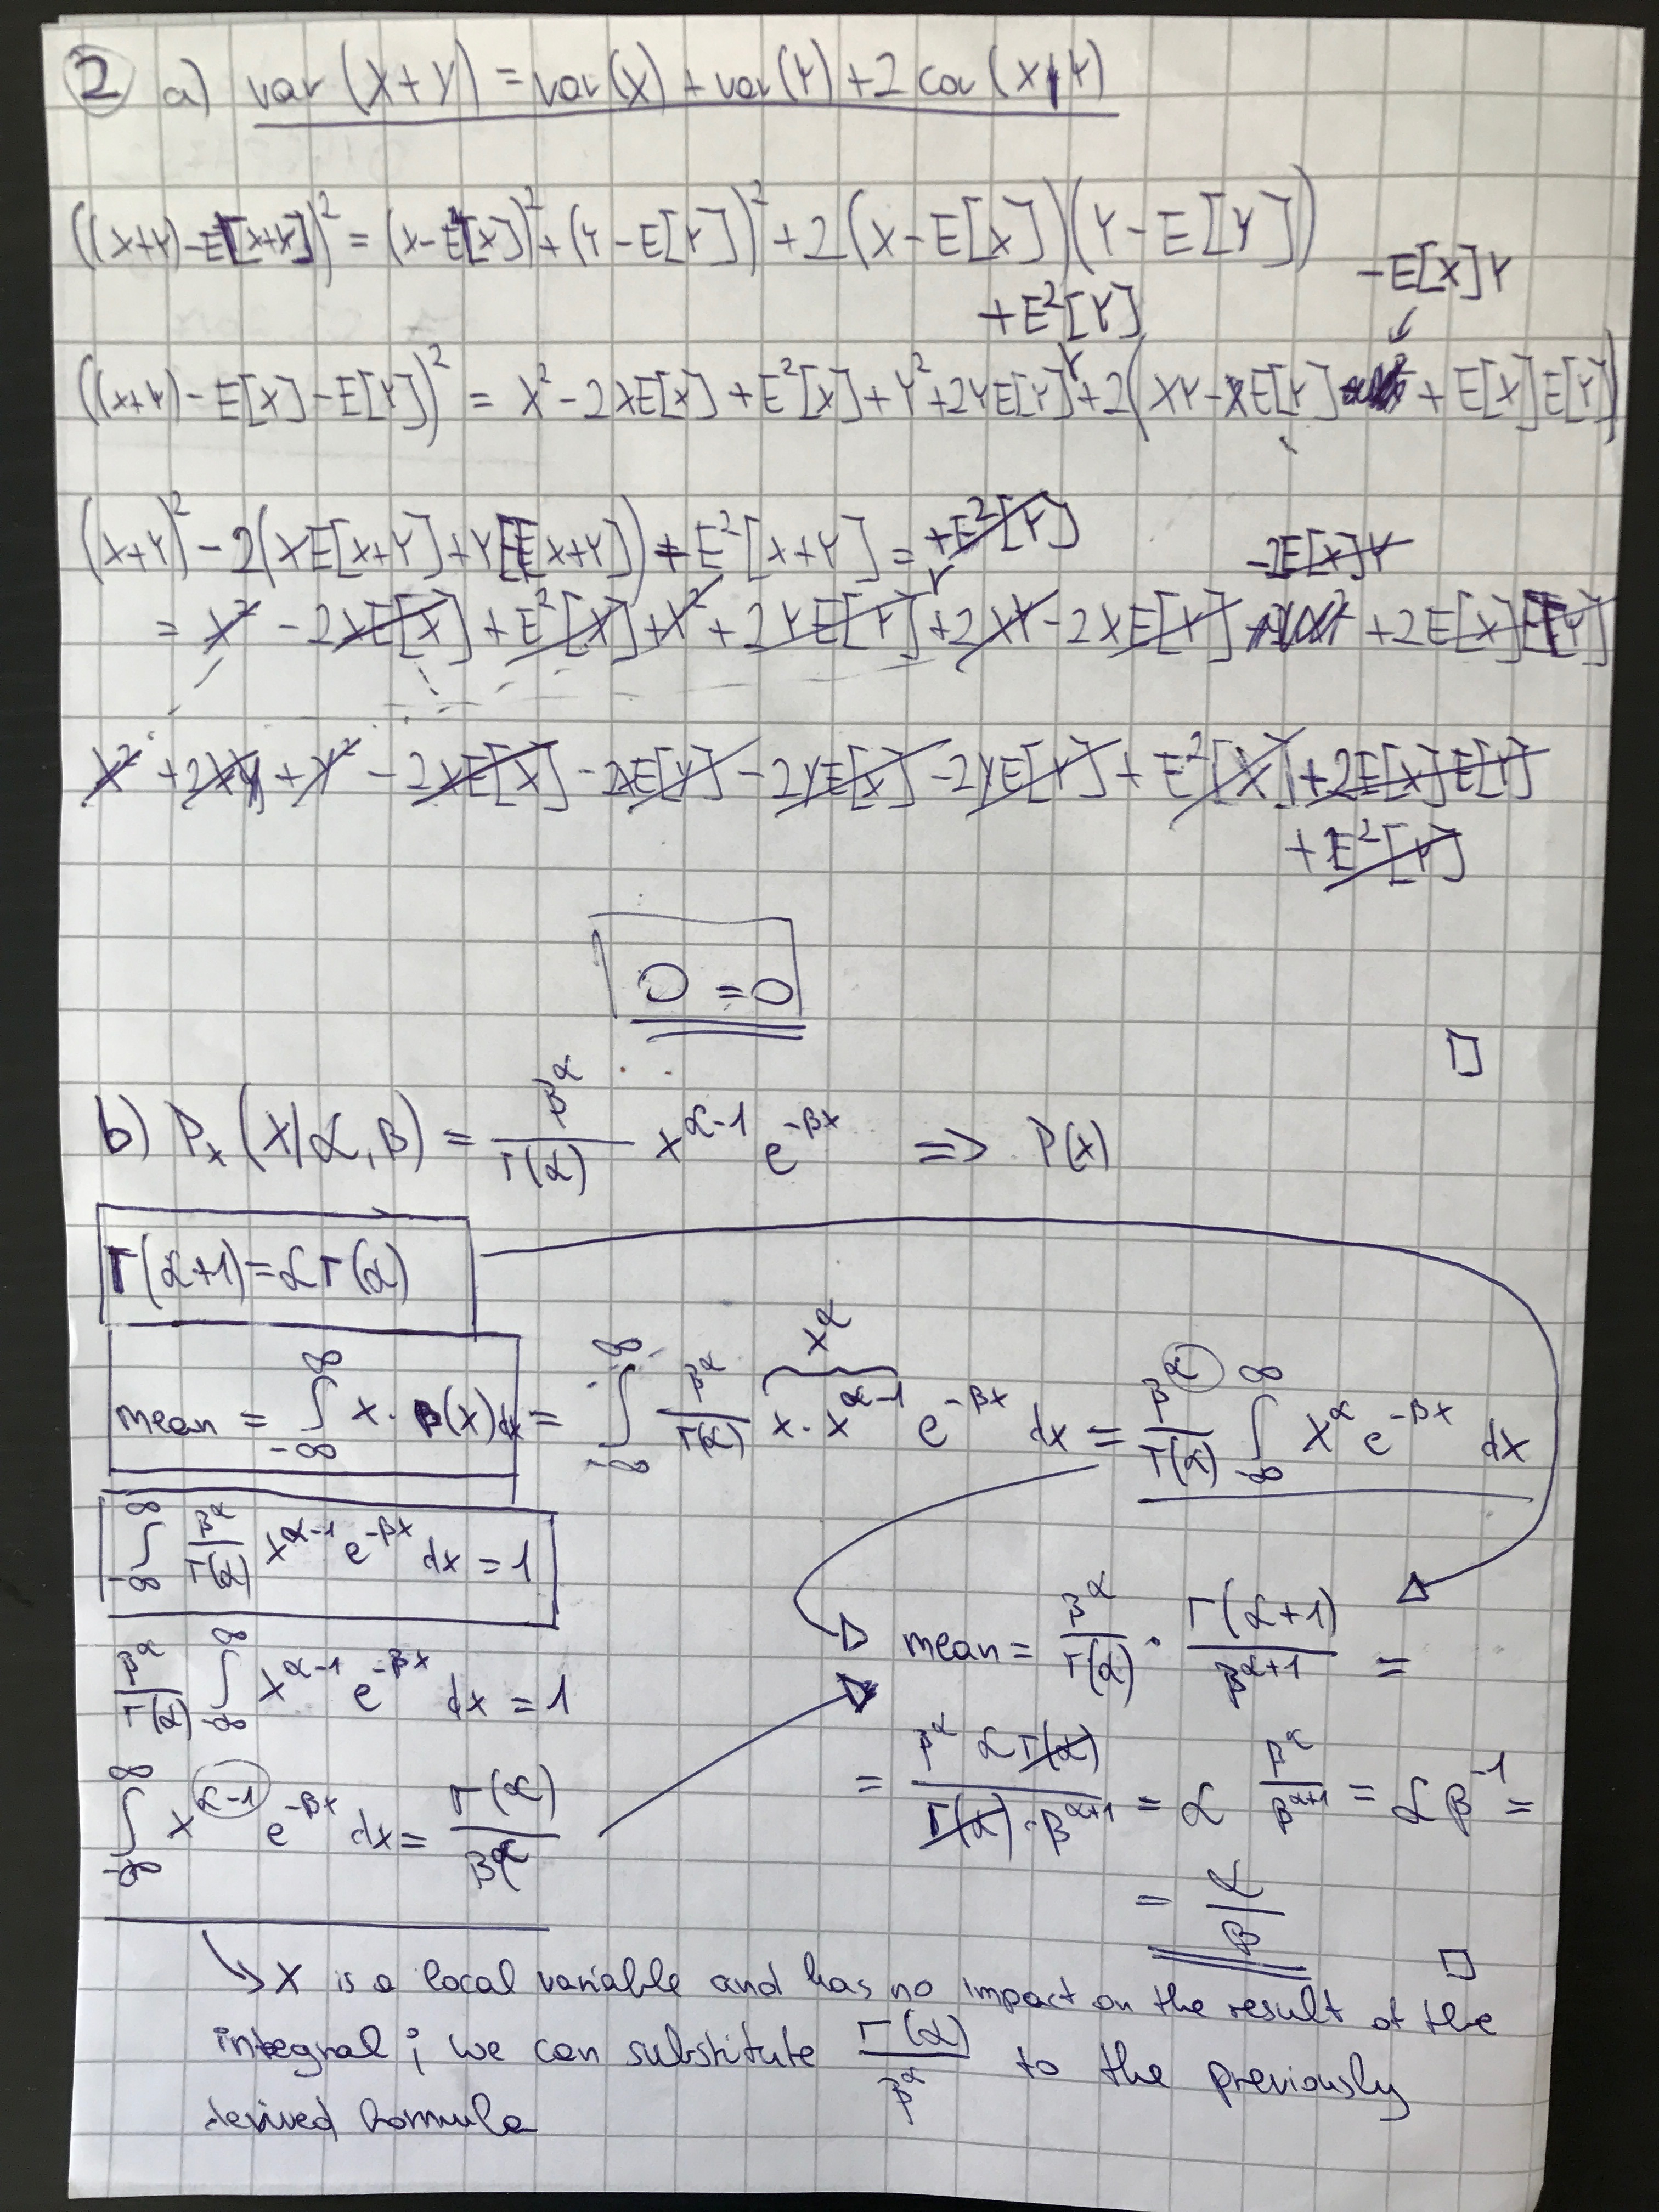 ② a) var (X+Y) = var(X) + var(Y) + 2 cov (X,Y)
((X+Y)-E[X+Y])² = (X-E[X])² + (Y-E[Y])² + 2(X-E[X])(Y-E[Y])
-E[X]Y
+E²[Y]
((X+Y)-E[X]-E[Y])² = X² - 2XE[X] + E²[X] + Y² + 2YE[Y] + 2(XY - XE[Y] + E[X]E[Y])
(X+Y)² - 2(XE[X+Y] + YE[X+Y]) + E²[X+Y] = +E²[Y]
-2E[X]Y
= X² - 2XE[X] + E²[X] + Y² + 2YE[Y] + 2XY - 2XE[Y] + 2E[X]E[Y]
X² + 2XY + Y² - 2XE[X] - 2XE[Y] - 2YE[X] - 2YE[Y] + E²[X] + 2E[X]E[Y]
+ E²[Y]
0 = 0
□
b) Pₓ(X|α,β) = β^α / Γ(α) x^(α-1) e^(-βx) => P(x)
Γ(α+1) = αΓ(α)
x^α
mean = ∫_{-∞}^{∞} x · p(x) dx = ∫_{-∞}^{∞} β^α / Γ(α) x · x^(α-1) e^(-βx) dx = β^α / Γ(α) ∫_{-∞}^{∞} x^α e^(-βx) dx
∫_{-∞}^{∞} β^α / Γ(α) x^(α-1) e^(-βx) dx = 1
mean = β^α / Γ(α) · Γ(α+1) / β^(α+1) =
β^α / Γ(α) ∫_{-∞}^{∞} x^(α-1) e^(-βx) dx = 1
= β^α α Γ(α) / Γ(α) · β^(α+1) = α β^α / β^(α+1) = α β^(-1) =
∫_{-∞}^{∞} x^(α-1) e^(-βx) dx = Γ(α) / β^α
= α / β
□
↳ X is a local variable and has no impact on the result of the
integral ; we can substitute Γ(α) / β^α to the previously
derived formula